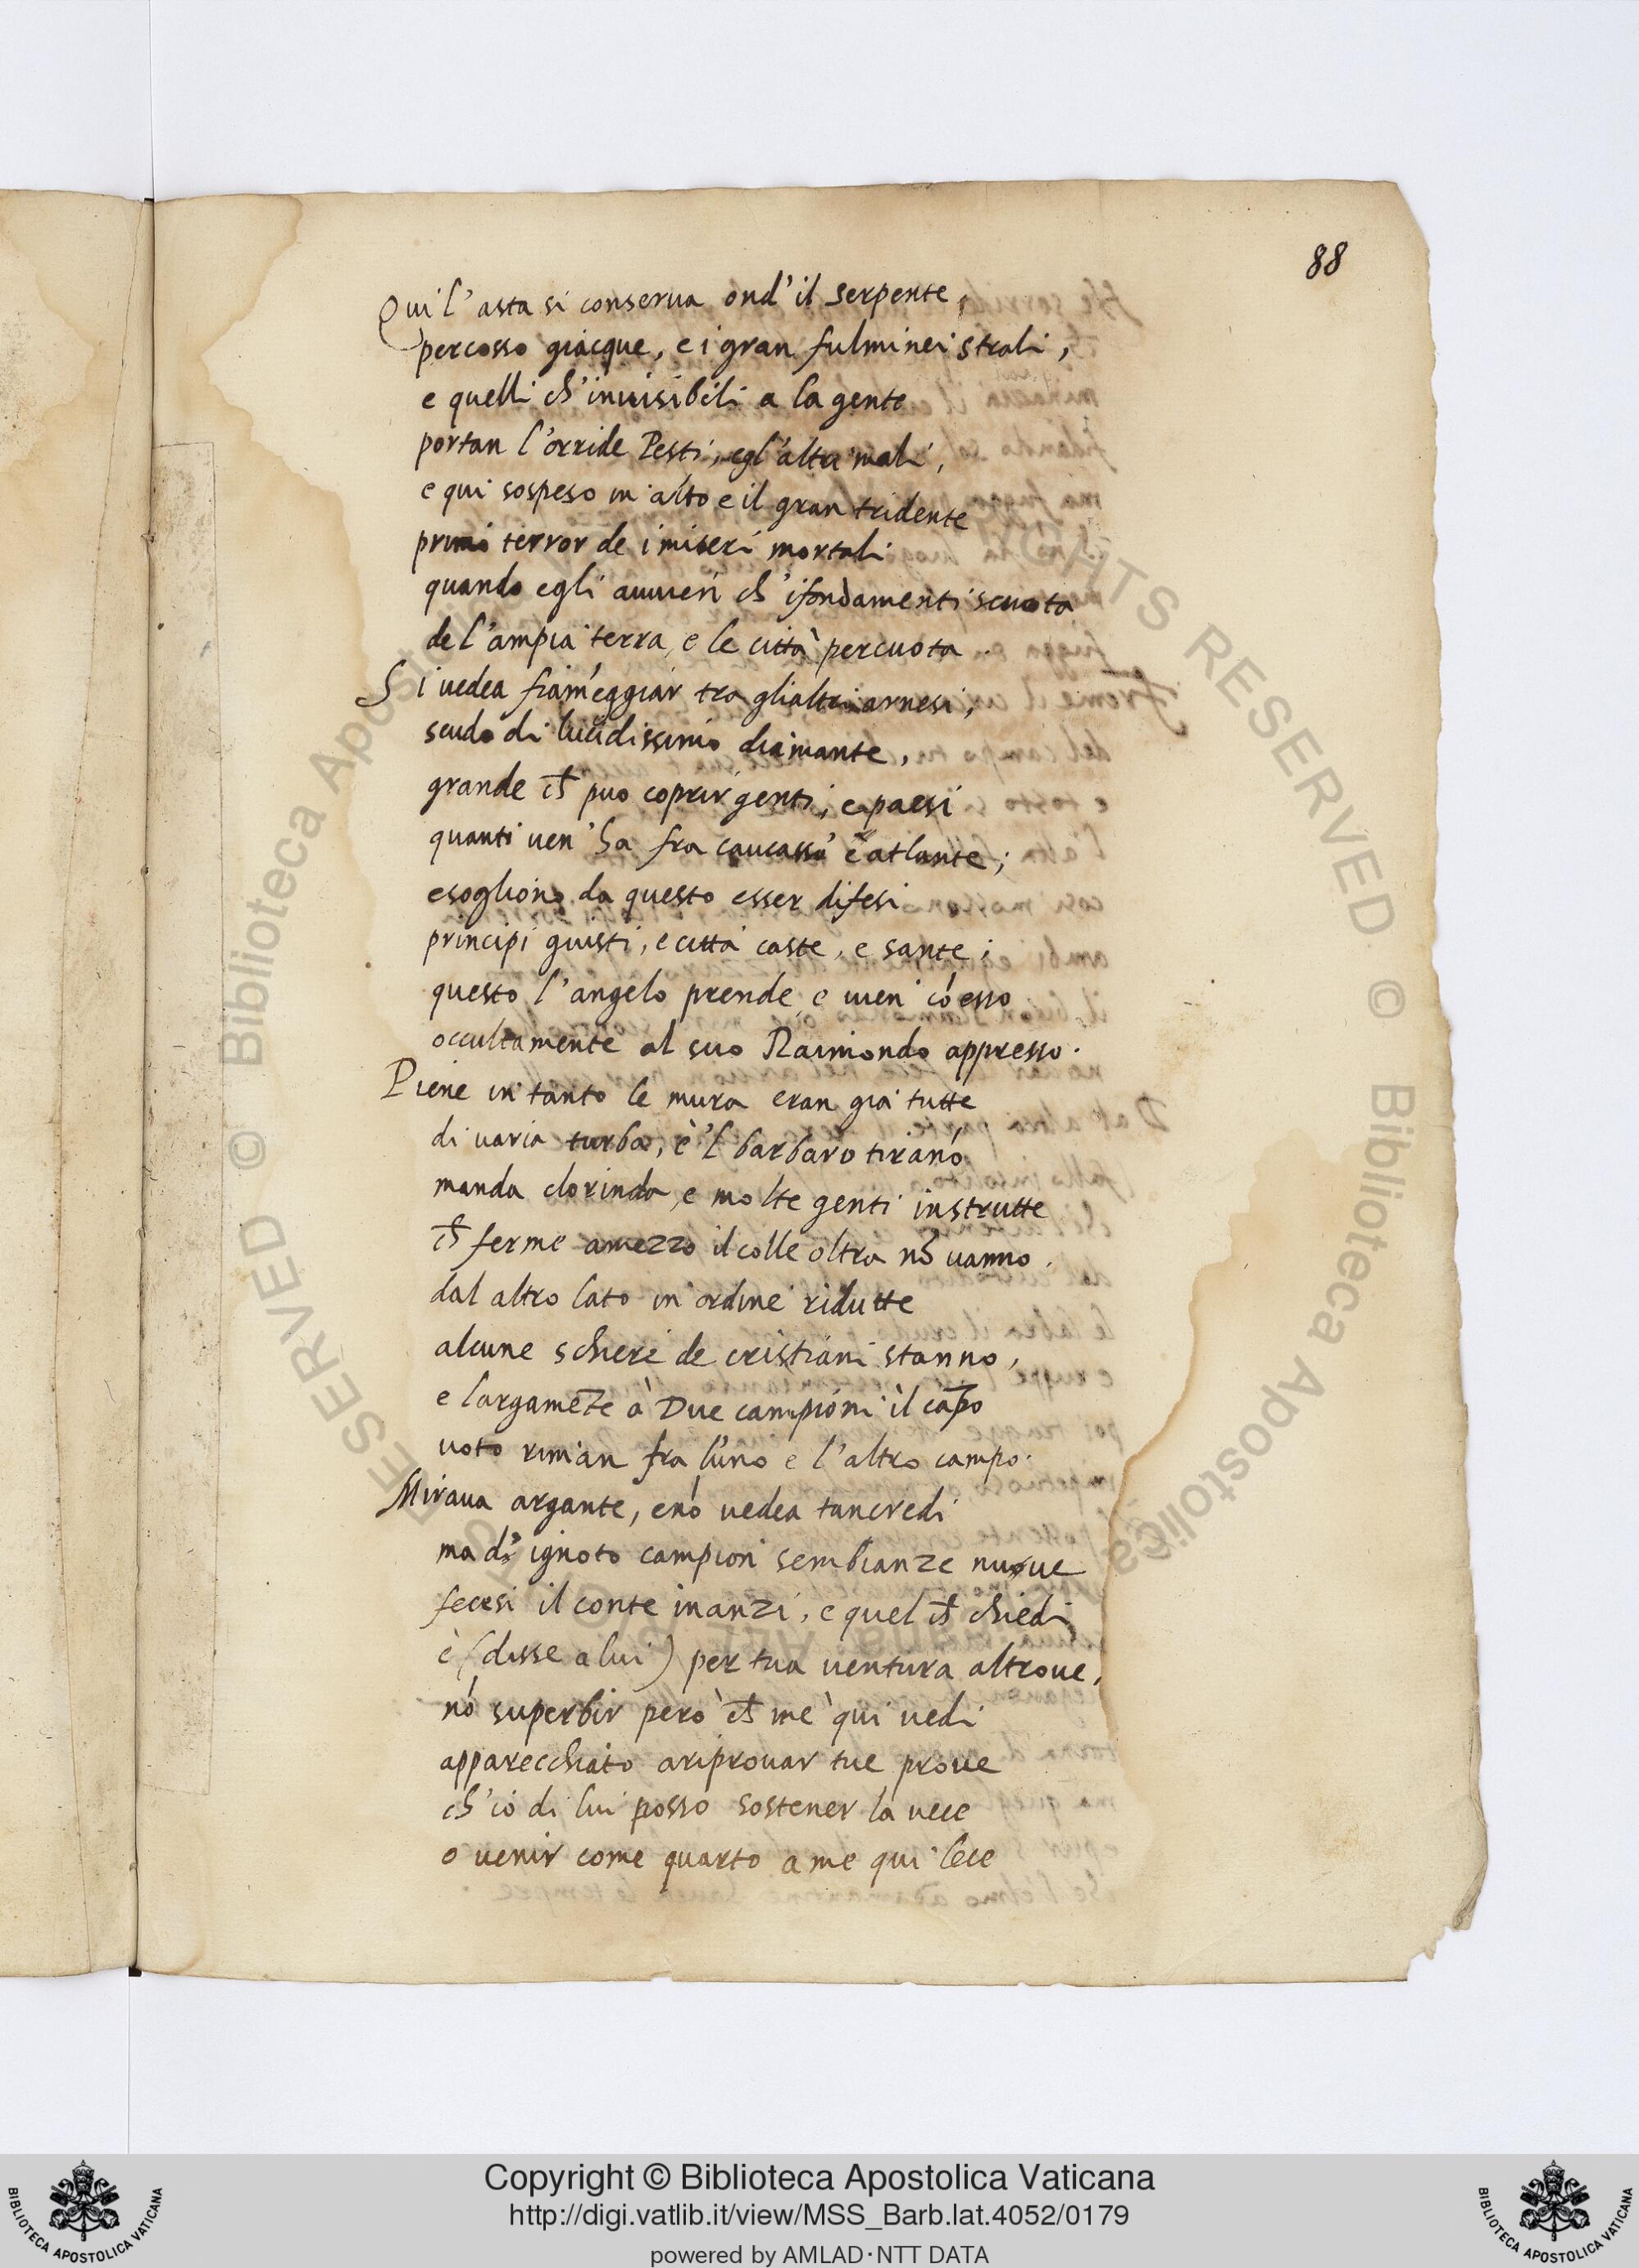 88
Qui l'asta si conserua ond'il serpente,
percosso giàcque, e i gran fulminei strali,
e quelli ch'inuisibili a la gente
portan l'orride Pesti, egl'altri mali,
e qui sospeso in alto e il gran tridente
primo terror de i miseri mortali
quando egli auuien ch'ifondamenti scuota
de l'ampia terra, e le città percuota.
Si uedea fiam'eggiar tra glialtri arnesi,
scudo di lucidissimo diamante,
grande ch̄ puo coprir genti, e paesi
quanti uen'ha fra caucasso e atlante;
esogliono da questo esser difesi
principi giusti, e citta caste, e sante;
questo l'angelo prende, e uien có esso
occultamente al suo Raimondo appresso.
Piene in tanto le mura eran già tutte
di uaria turba, è 'l barbaro tiranó
manda clorinda, e molte genti instrutte
ch̄ ferme amezzo il colle oltra nō uanno.
dal altro lato in ordine ridutte
alcune schiere de cristiani stanno,
e largamēte à Due campioni il cāpo
uoto riman fra l'uno e l'altro campo.
Miraua argante, enó uedea tancredi
ma d'ignoto campion sembianze nuoue
fecesi il conte inanzi, e quel ch̄ chiedi
è (disse a lui) per tua uentura altroue,
nó superbir però ch̄ me qui uedi
apparecchiato ariprouar tue proue
ch'io di lui posso sostener la uece
o uenir come quarto a me qui lece
Copyright © Biblioteca Apostolica Vaticana
http://digi.vatlib.it/view/MSS_Barb.lat.4052/0179
powered by AMLAD·NTT DATA
BIBLIOTECA APOSTOLICA VATICANA
BIBLIOTECA APOSTOLICA VATICANA